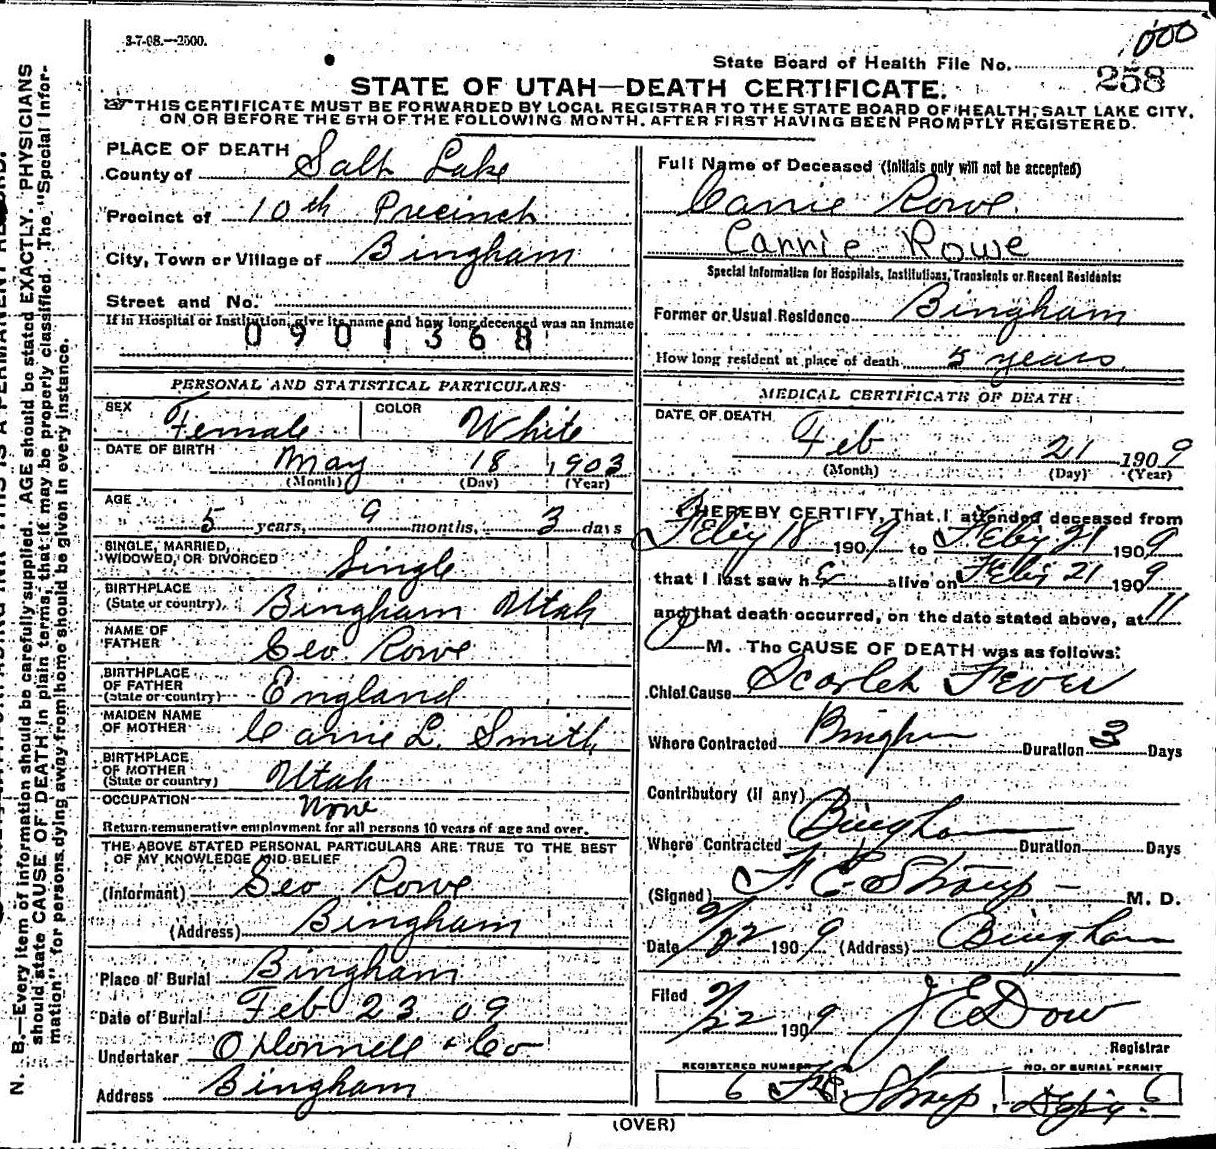 3-7-08.—2500.
000
State Board of Health File No. 258
STATE OF UTAH—DEATH CERTIFICATE.
THIS CERTIFICATE MUST BE FORWARDED BY LOCAL REGISTRAR TO THE STATE BOARD OF HEALTH, SALT LAKE CITY,
ON OR BEFORE THE 5TH OF THE FOLLOWING MONTH. AFTER FIRST HAVING BEEN PROMPTLY REGISTERED.
PLACE OF DEATH
County of Salt Lake
Precinct of 10th Precinct
City, Town or Village of Bingham
Street and No.
If in Hospital or Institution, give its name and how long deceased was an inmate
0901368
PERSONAL AND STATISTICAL PARTICULARS
SEX Female COLOR White
DATE OF BIRTH May 18 1903
(Month) (Day) (Year)
AGE
5 years, 9 months, 3 days
SINGLE, MARRIED,
WIDOWED, OR DIVORCED Single
BIRTHPLACE
(State or country) Bingham Utah
NAME OF
FATHER Geo Rowe
BIRTHPLACE
OF FATHER
(State or country) England
MAIDEN NAME
OF MOTHER Carrie L. Smith
BIRTHPLACE
OF MOTHER
(State or country) Utah
OCCUPATION None
Return remunerative employment for all persons 10 years of age and over.
THE ABOVE STATED PERSONAL PARTICULARS ARE TRUE TO THE BEST
OF MY KNOWLEDGE AND BELIEF
(Informant) Geo Rowe
(Address) Bingham
Place of Burial Bingham
Date of Burial Feb 23 09
Undertaker O'Donnell & Co
Address Bingham
Full Name of Deceased (Initials only will not be accepted)
Carrie Rowe
Carrie Rowe
Special Information for Hospitals, Institutions, Transients or Recent Residents:
Former or Usual Residence Bingham
How long resident at place of death 5 years
MEDICAL CERTIFICATE OF DEATH
DATE OF DEATH
Feb 21 1909
(Month) (Day) (Year)
I HEREBY CERTIFY, That I attended deceased from
Feby 18 1909 to Feby 21 1909
that I last saw her alive on Feby 21 1909
and that death occurred, on the date stated above, at 11
P M. The CAUSE OF DEATH was as follows:
Chief Cause Scarlet Fever
Where Contracted Bingham Duration 3 Days
Contributory (if any)
Where Contracted Bingham Duration Days
(Signed) F. E. Straup M. D.
Date 2/22 1909 (Address) Bingham
Filed 2/22 1909 J E Dow
Registrar
REGISTERED NUMBER NO. OF BURIAL PERMIT
6 F.E. Straup 6
(OVER)
N. B.—Every item of information should be carefully supplied. AGE should be stated EXACTLY. PHYSICIANS
should state CAUSE OF DEATH in plain terms, that it may be properly classified. The "Special Infor-
mation" for persons dying away from home should be given in every instance.